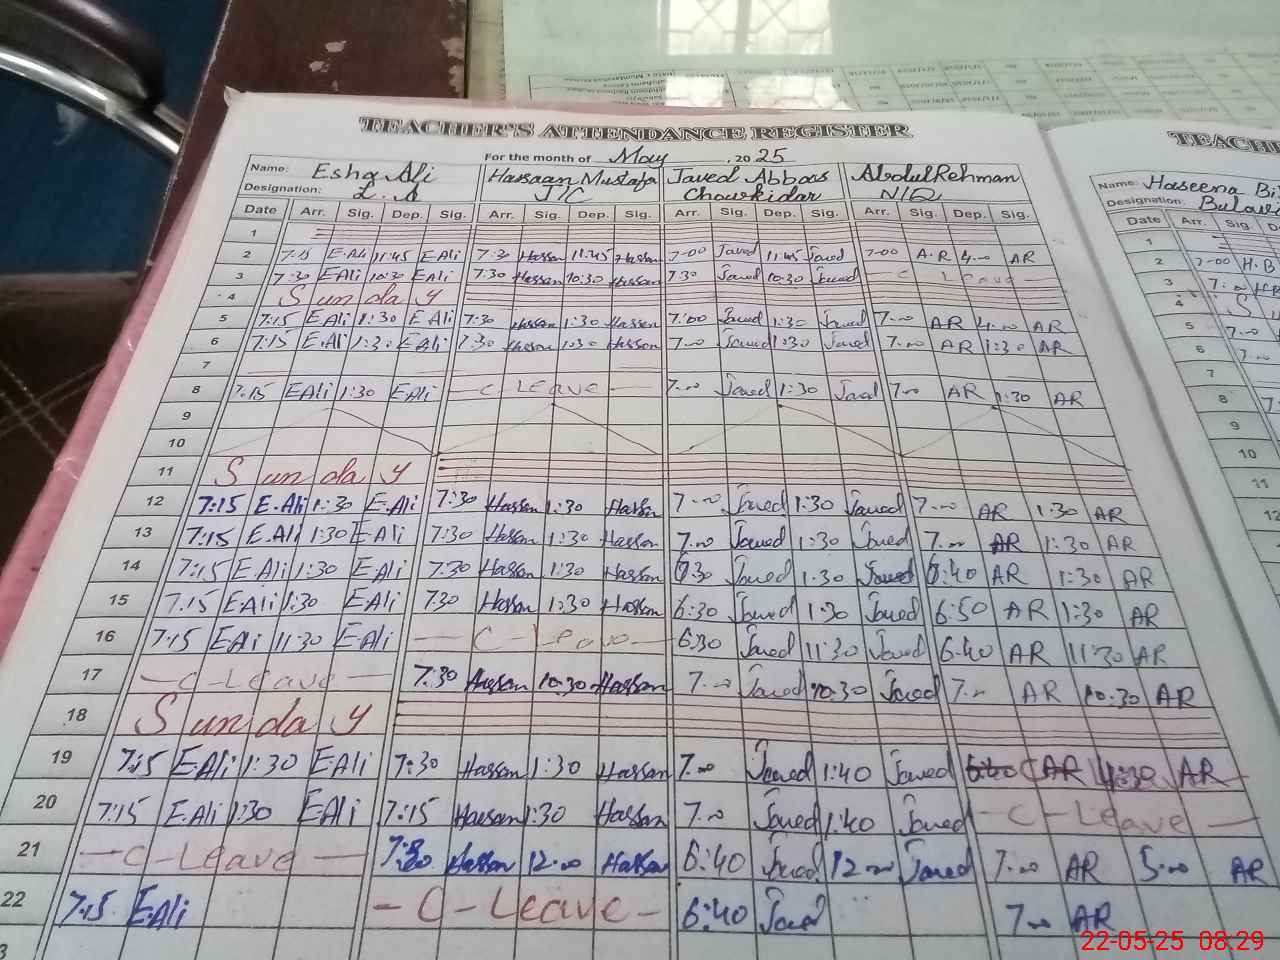 TEACHER'S ATTENDANCE REGISTER
For the month of May, 2025
Name: Esha Ali Hassaan Mustafa Javed Abbas Abdul Rehman
Designation: L.A J/C Chowkidar N/Q
Date Arr. Sig. Dep. Sig. Arr. Sig. Dep. Sig. Arr. Sig. Dep. Sig. Arr. Sig. Dep. Sig.
1
2 7:15 E.Ali 11:45 E Ali 7:30 Hassan 11:45 Hassan 7-00 Javed 11:45 Javed 7-00 A.R 4-00 AR
3 7:30 E Ali 10:30 E Ali 7:30 Hassan 10:30 Hassan 7:30 Javed 10:30 Javed - C Leave -
4 Sunday
5 7:15 E Ali 1:30 E Ali 7:30 Hassan 1:30 Hassan 7:00 Javed 1:30 Javed 7-00 AR 4-00 AR
6 7:15 E.Ali 1:30 E Ali 7:30 Hassan 1:30 Hassan 7-00 Javed 1:30 Javed 7-00 AR 1:30 AR
7
8 7:15 E Ali 1:30 E Ali - C Leave - 7-00 Javed 1:30 Javed 7-00 AR 1:30 AR
9
10
11 Sunday
12 7:15 E.Ali 1:30 E.Ali 7:30 Hassan 1:30 Hassan 7-00 Javed 1:30 Javed 7-00 AR 1:30 AR
13 7:15 E.Ali 1:30 E Ali 7:30 Hassan 1:30 Hassan 7-00 Javed 1:30 Javed 7-00 AR 1:30 AR
14 7:15 E Ali 1:30 E Ali 7:30 Hassan 1:30 Hassan 6:30 Javed 1:30 Javed 6:40 AR 1:30 AR
15 7:15 E Ali 1:30 E Ali 7:30 Hassan 1:30 Hassan 6:30 Javed 1:30 Javed 6:50 AR 1:30 AR
16 7:15 E Ali 11:30 E Ali - C - Leave - 6:30 Javed 11:30 Javed 6:40 AR 11:30 AR
17 - C - Leave - 7:30 Hassan 10:30 Hassan 7-00 Javed 10:30 Javed 7-00 AR 10:30 AR
18 Sunday
19 7:15 E Ali 1:30 E Ali 7:30 Hassan 1:30 Hassan 7-00 Javed 1:40 Javed AR AR
20 7:15 E Ali 1:30 E Ali 7:15 Hassan 1:30 Hassan 7-00 Javed 1:40 Javed - C - Leave -
21 - C - Leave - 7:30 Hassan 12-00 Hassan 6:40 Javed 12-00 Javed 7-00 AR 5-00 AR
22 7:15 E.Ali - C - Leave - 6:40 Javed 7-00 AR
22-05-25 08.29
Name: Haseena
Designation:
Date Arr. Sig.
1
2 7-00 H.B
3
4 S
5 7-00
6 7-00
7
8
9
10
11